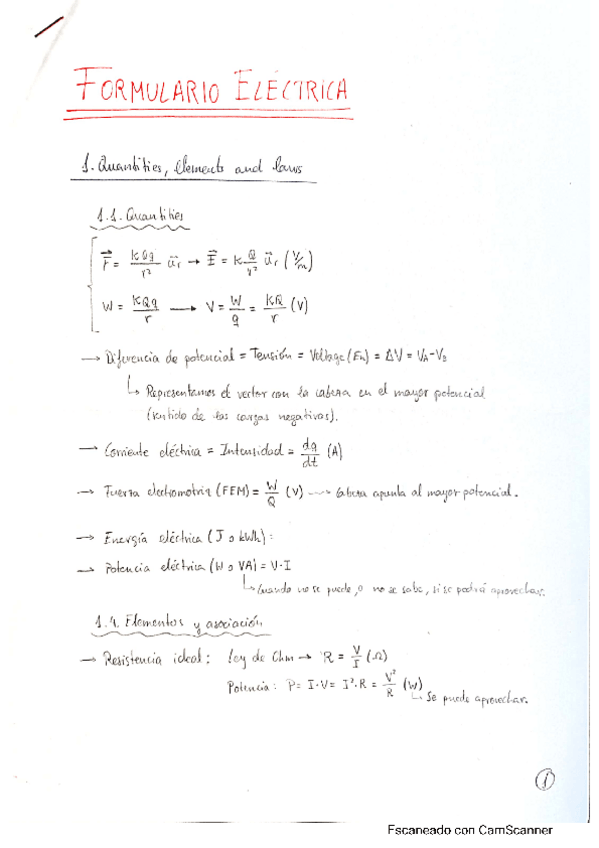 FORMULARIO ELÉCTRICA
1. Quantities, Elements and laws
1.1. Quantities
F⃗ = KQq/r² u⃗r → E⃗ = K Q/r² u⃗r (V/m)
W = KQq/r → V = W/q = KQ/r (V)
→ Diferencia de potencial = Tensión = Voltage (En) = ΔV = VA-VB
↳ Representamos el vector con la cabeza en el mayor potencial
(sentido de las cargas negativas).
→ Corriente eléctrica = Intensidad = dq/dt (A)
→ Fuerza electromotriz (FEM) = W/Q (V) → Cabeza apunta al mayor potencial.
→ Energía eléctrica (J o kWh):
→ Potencia eléctrica (W o VA) = V·I
↳ Cuando no se puede, o no se sabe, si se podrá aprovechar.
1.4. Elementos y asociación
→ Resistencia ideal: ley de Ohm → R = V/I (Ω)
Potencia: P = I·V = I²·R = V²/R (W)
↳ Se puede aprovechar.
1
Escaneado con CamScanner